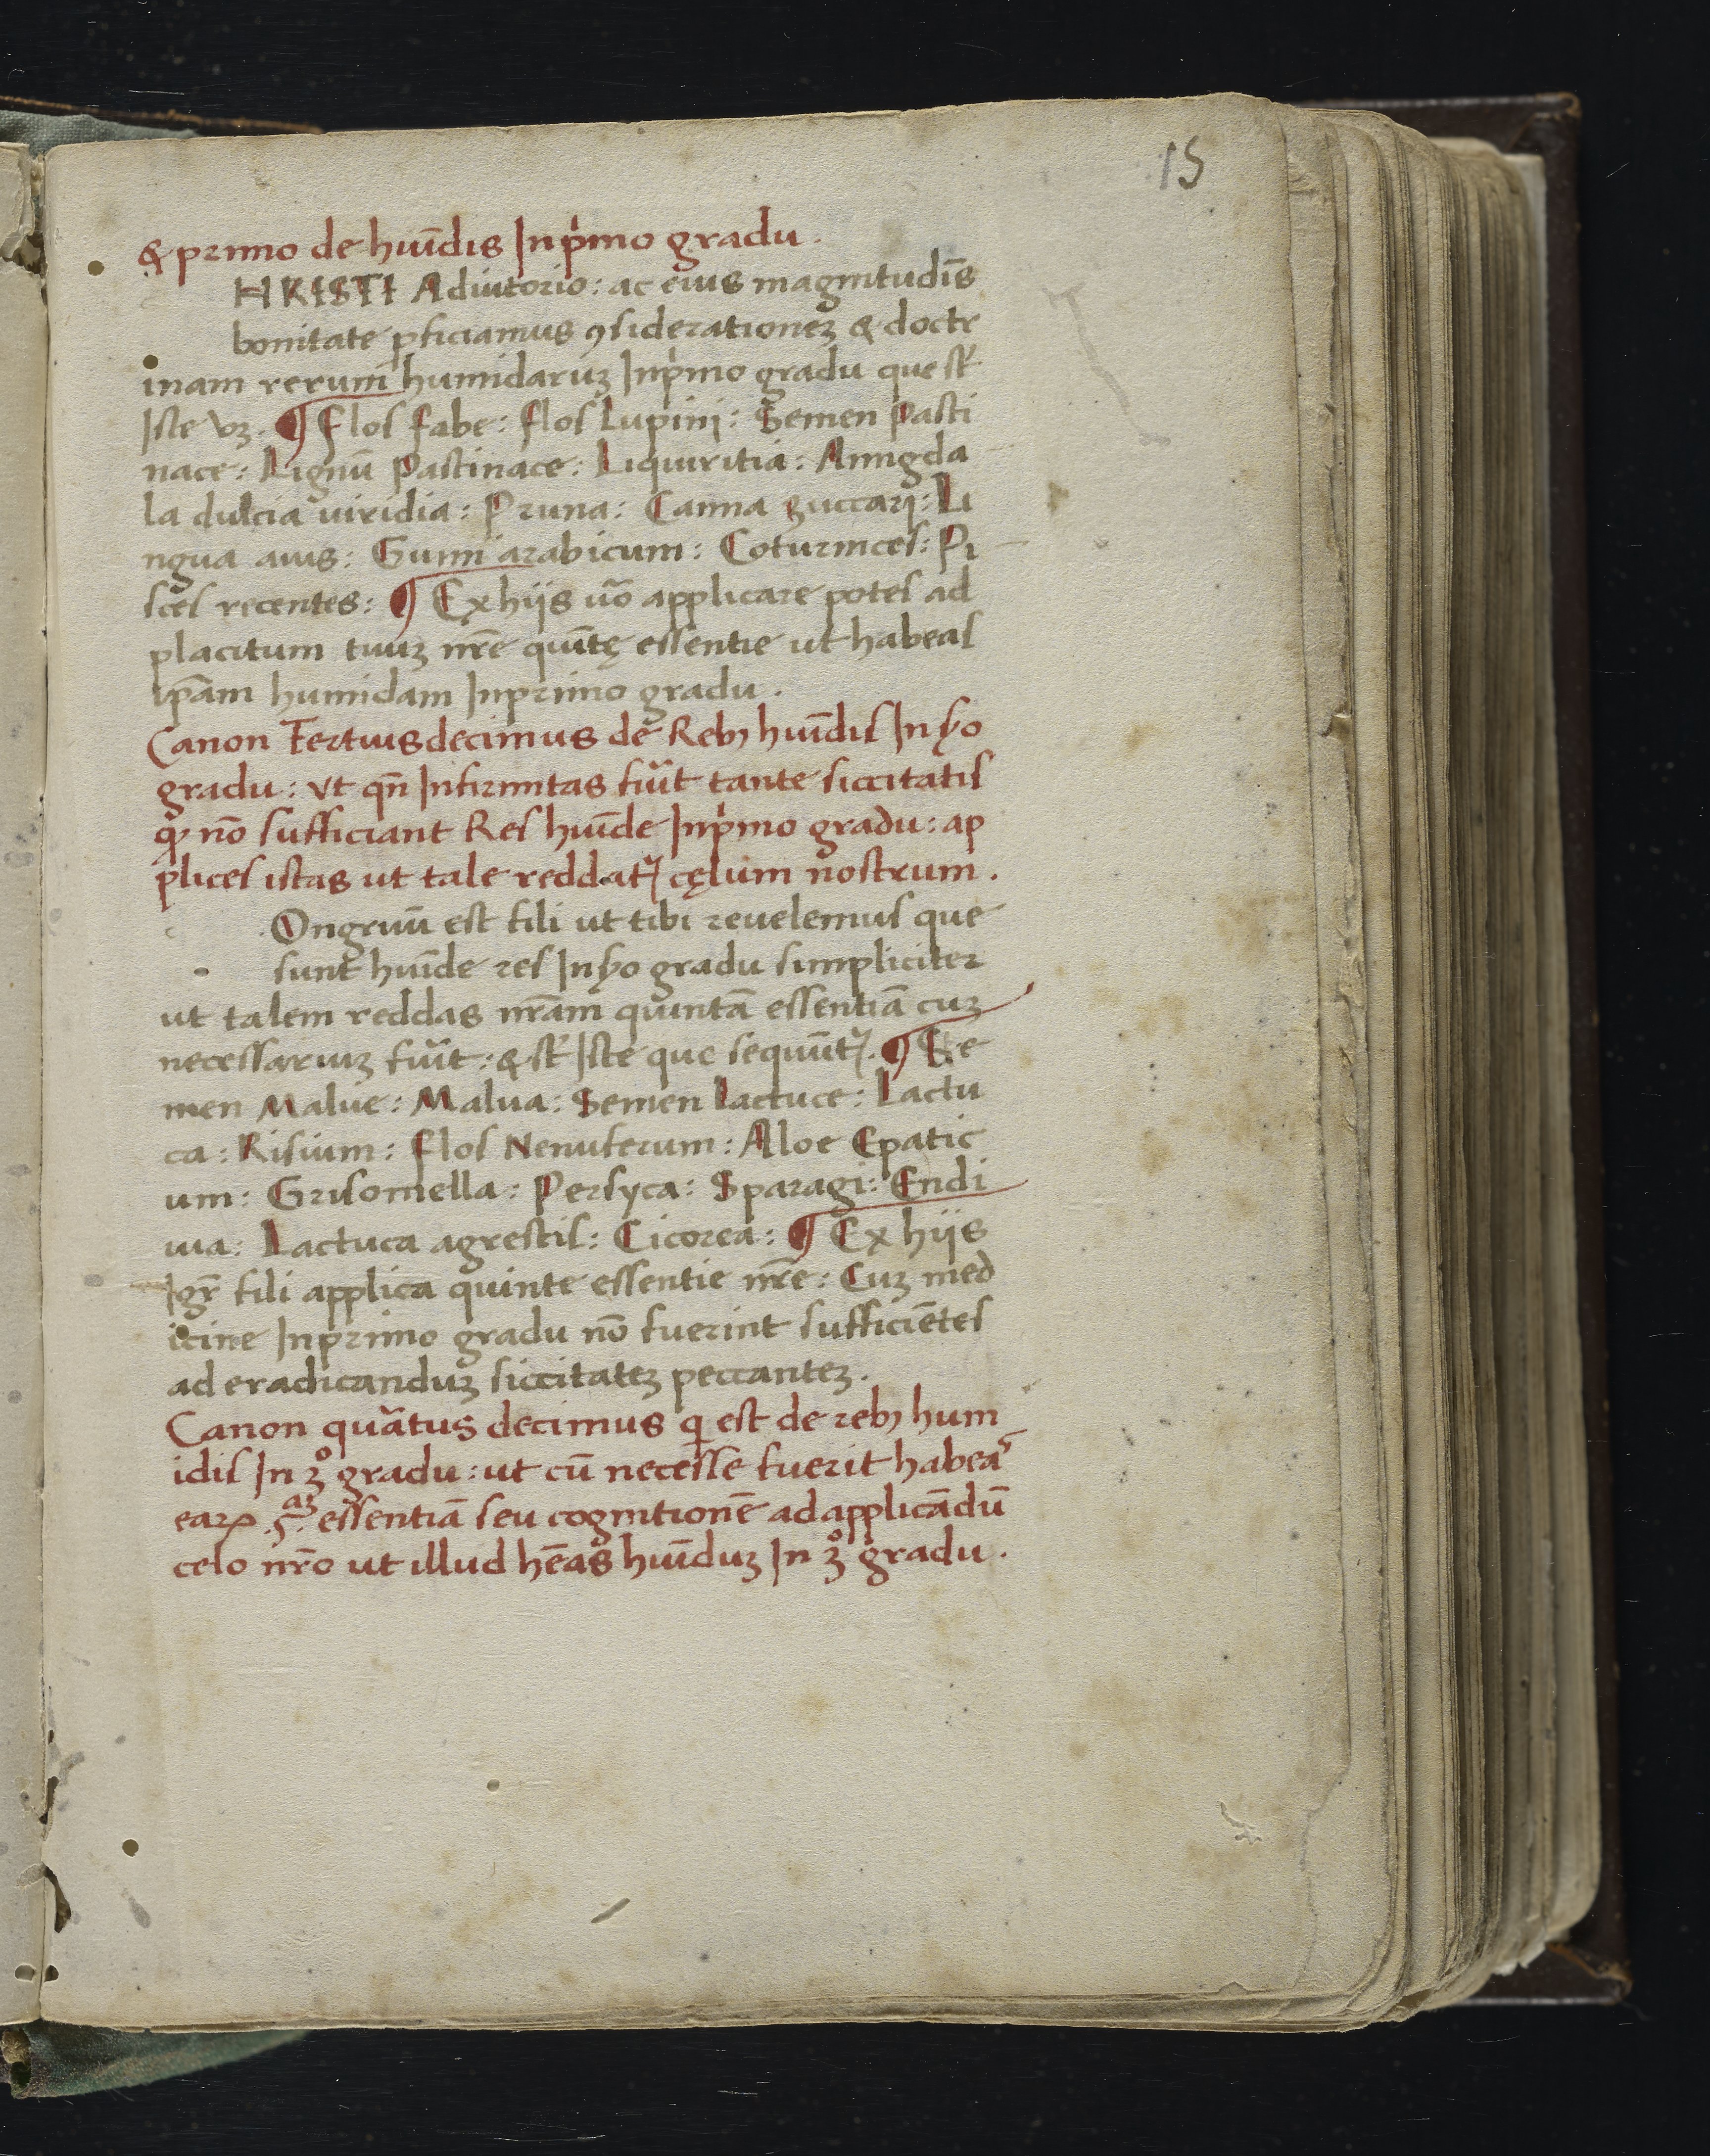 15
& primo de huīdis Inpͥmo gradu.
HRISTI Adiutorio: ac eius magnitudīs
bonitate ꝑficiamus ꝯsiderationeꝫ & doctr
inam rerum humidaruꝫ Inpͥmo gradu que st̄
Iste vꝫ. ¶ Flos fabe: flos Lupini: Semen Pasti
nace: Lignū Pastinace: Liquiritia: Amigda
la dulcia uiridia: Pruna: Canna zuccari: Li
ngua auis: Gumi arabicum: Coturnices: Pi
sces recentes: ¶ Ex hiis uō applicare potes ad
placitum tuuꝫ nr̄e quītę essentie ut habeas
ip̄am humidam Inprimo gradu.
Canon Tertiusdecimus de Rebꝫ huīdis In ẜo
gradu: vt qn̄ Infirmitas fūit tante siccitatis
ꝙ nō sufficiant Res huīde Inpͥmo gradu: ap
plices istas ut tale reddatᷣ cęlum nostrum.
Ongruū est fili ut tibi reuelemus que
sunt huīde res In ẜo gradu simpliciter
ut talem reddas nr̄am quintā essentiā cuꝫ
necessariuꝫ fūit: & st̄ Iste que sequūtᷣ. ¶ Se
men Malue: Malua: Semen lactuce: Lactu
ca: Risium: flos Nenuferum: Aloe Epatic
um: Grisomella: Persyca: Sparagi: Endi
uia: Lactuca agrestis: Cicorea: ¶ Ex hiis
Igr̄ fili applica quinte essentie nr̄e: Cuꝫ med
icine Inprimo gradu nō fuerint sufficiētes
ad eradicanduꝫ siccitateꝫ peccanteꝫ.
Canon quātus decimus q̄ est de rebꝫ hum
idis In 3º gradu: ut cū necesse fuerit habeās
eaꝝ .5.am essentiā seu cognitionē ad applicādū
celo nr̄o ut illud hēas huīduꝫ In 3º gradu.